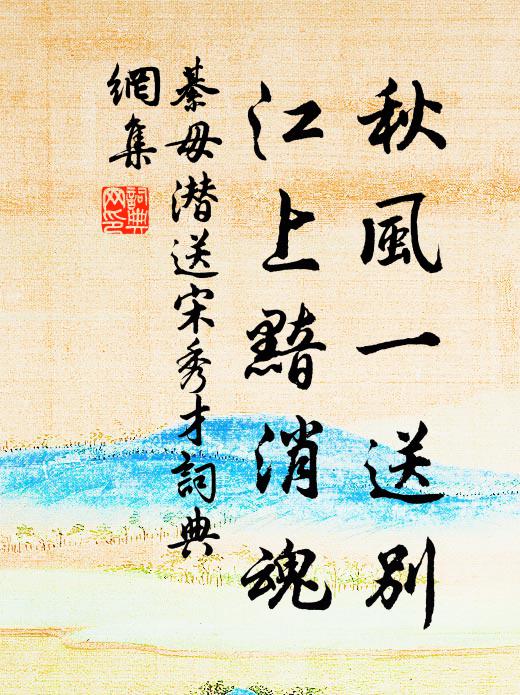 秋風一送別
江上黯消魂
綦毋潛送宋秀才詞典
網集
詞典
网印